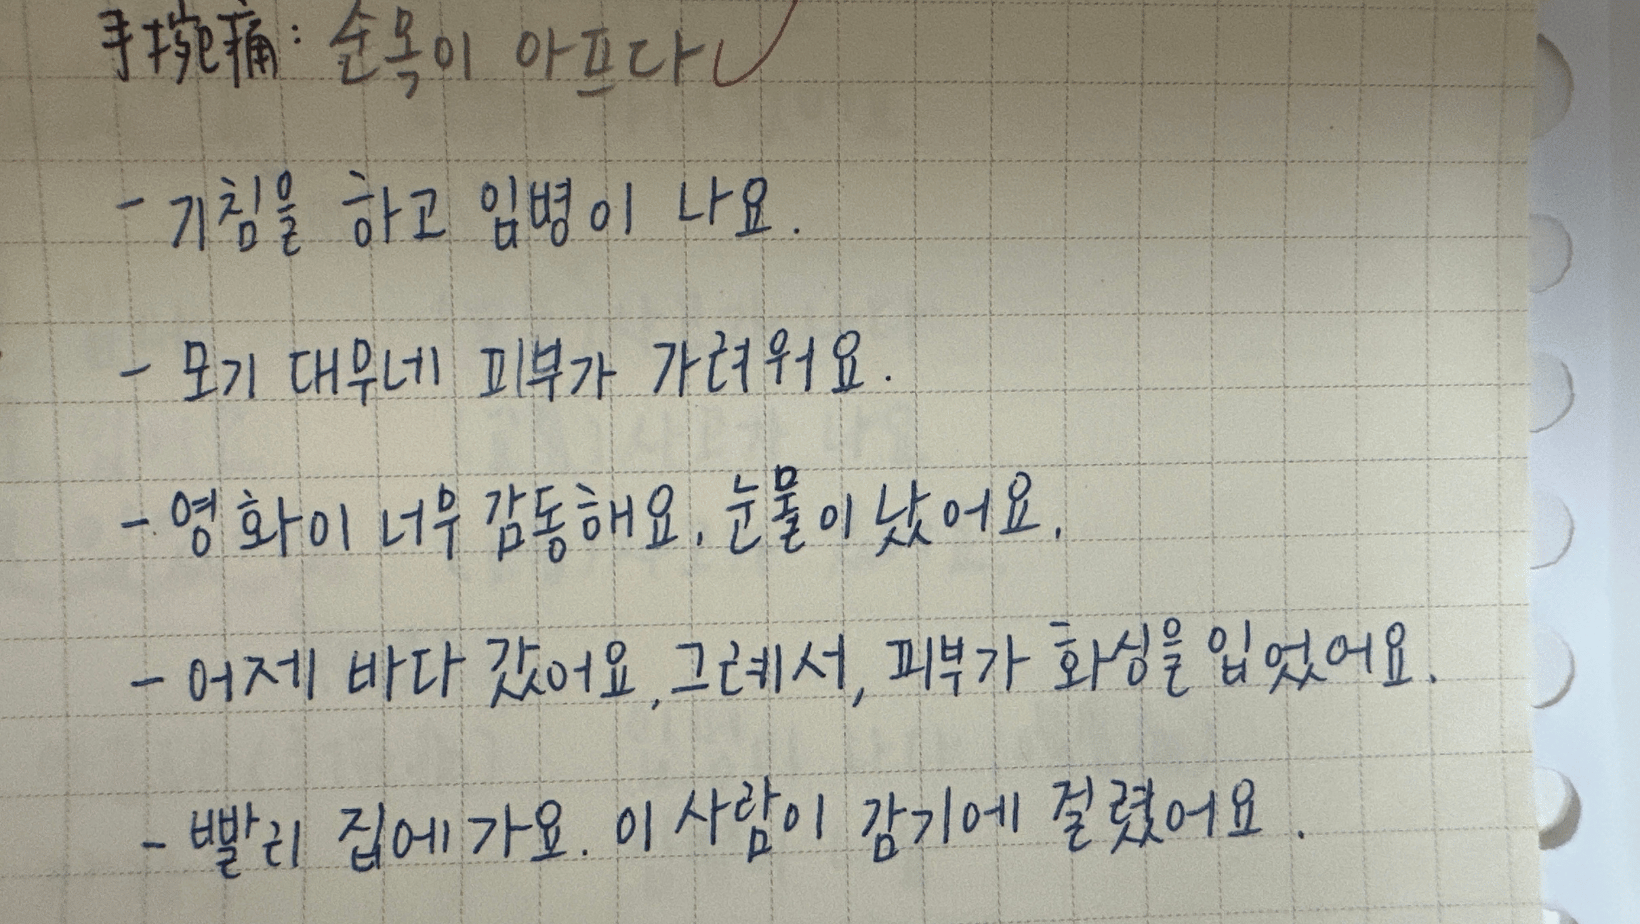 手捥痛: 손목이 아프다
- 기침을 하고 입병이 나요.
- 모기 대무네 피부가 가려워요.
- 영화이 너무 감동해요. 눈물이 났어요.
- 어제 바다 갔어요. 그레서, 피부가 화싱을 입었어요.
- 빨리 집에 가요. 이 사람이 감기에 걸렸어요.